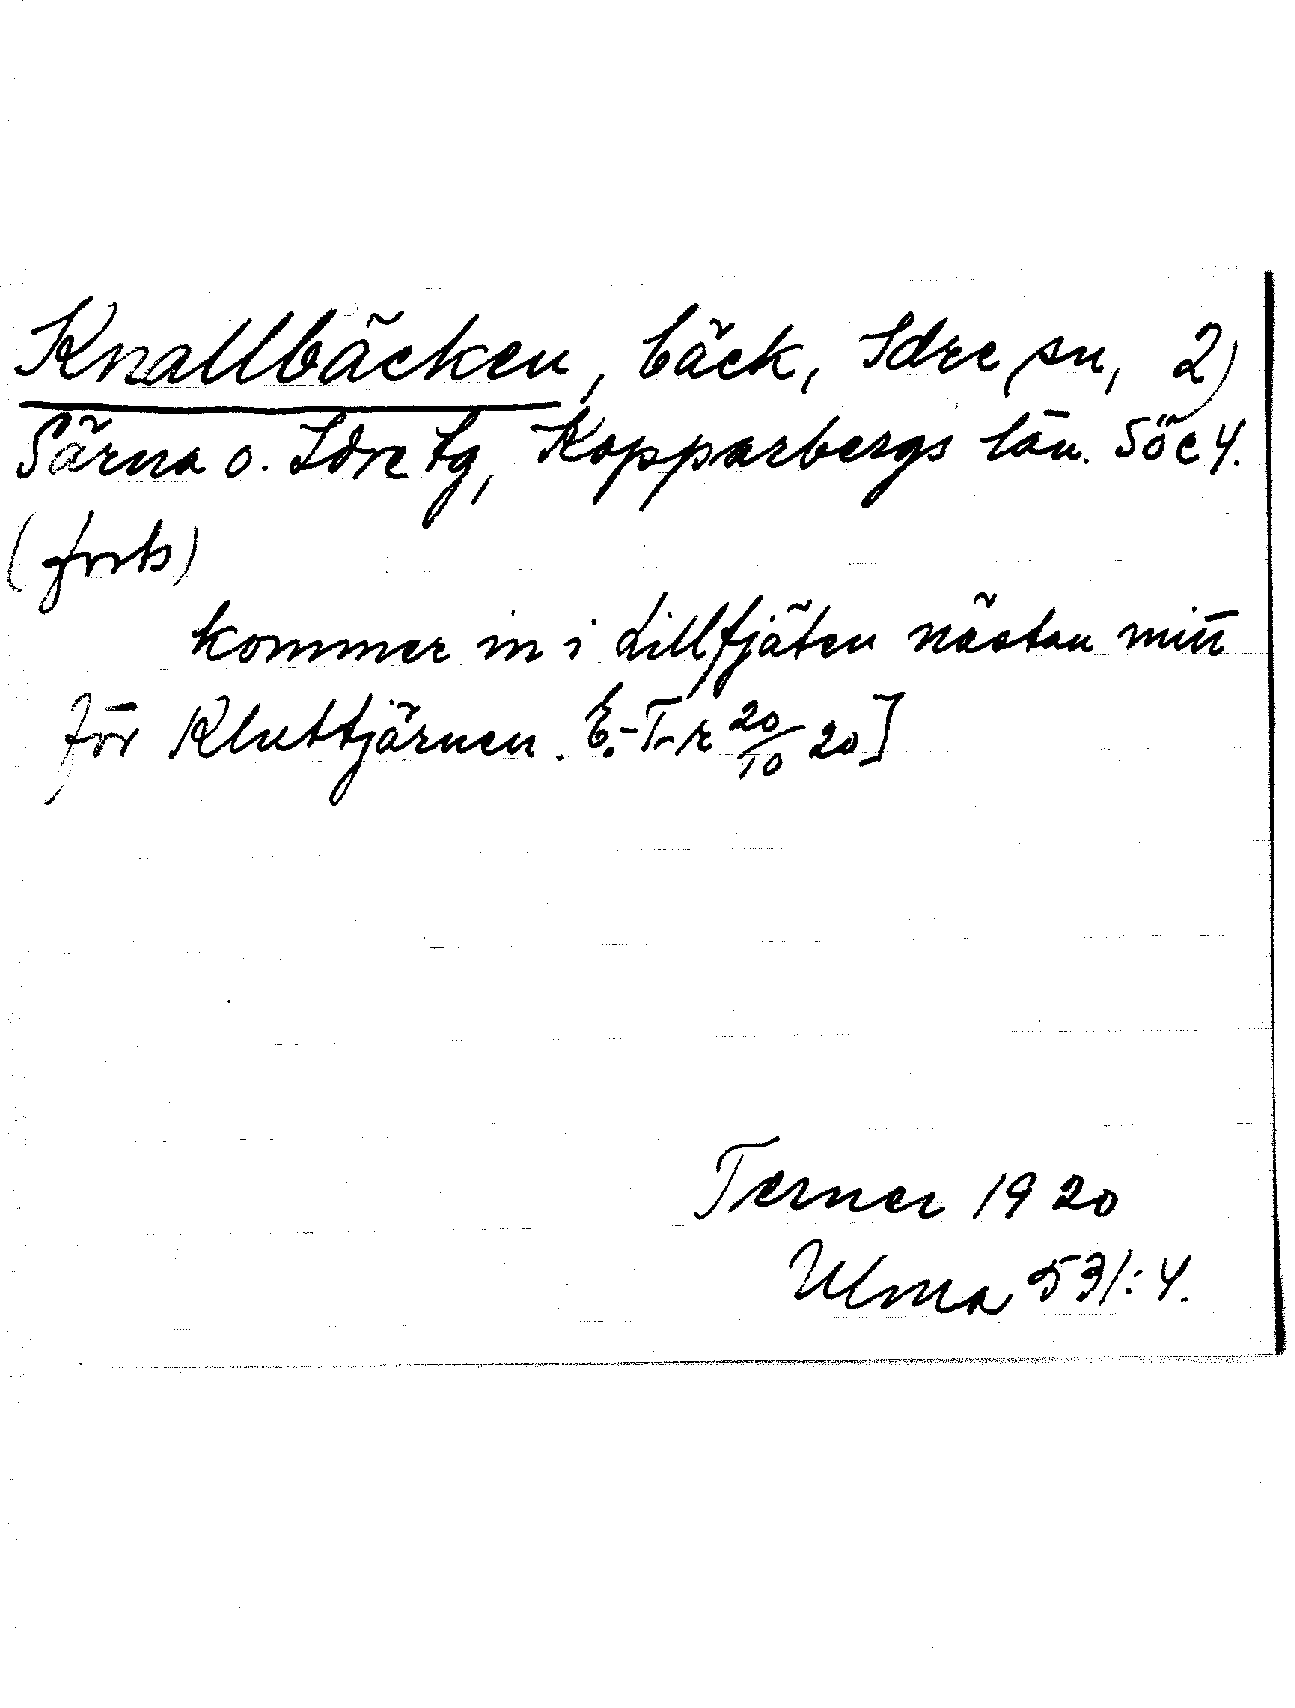 Knallbäcken, bäck, Idre sn, 2)
Särna o. Idre tg, Kopparbergs län. 5öc4.
(forts)
kommer in i Lillfjäten nästan mitt
för Kluttjärnen. E.-T-r 20/10 20]
Terner 1920
Ulma 531:4.